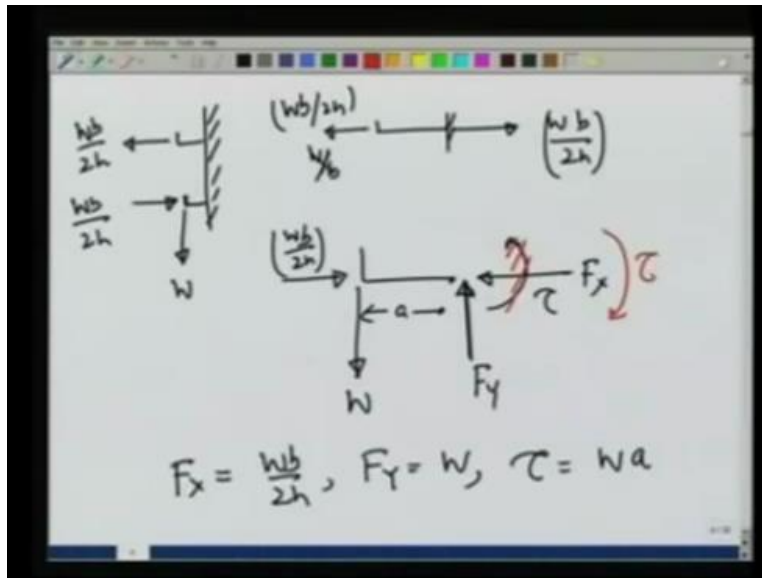 (Wb/2h)
Wb/2h
W/b
(Wb/2h)
Wb/2h
W
(Wb/2h)
Fx
τ
τ
a
W
Fy
Fx = Wb/2h, Fy = W, τ = Wa